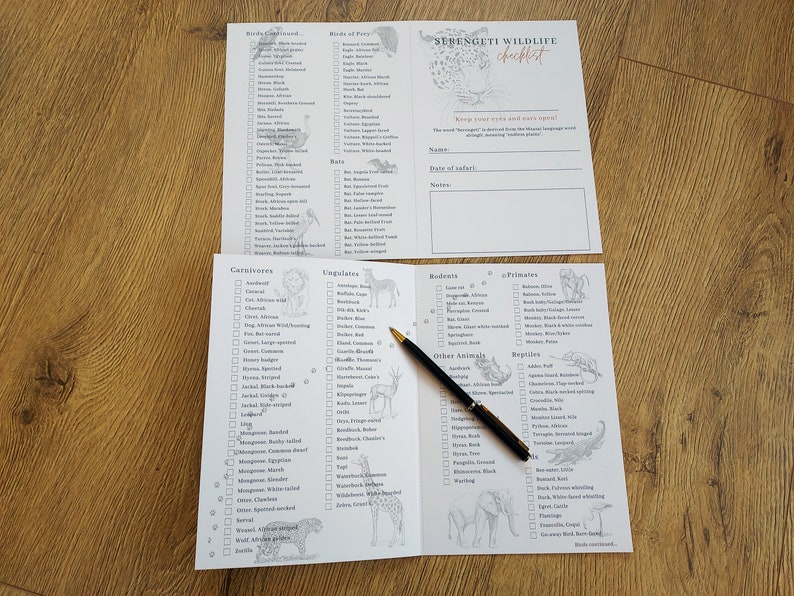 Birds Continued...
Goose, Egyptian
Guinea fowl, Crested
Guinea fowl, Helmeted
Hammerkop
Heron, Black
Heron, Goliath
Hoopoe, African
Hornbill, Southern Ground
Ibis, Hadada
Ibis, Sacred
Jacana, African
Lapwing, Blacksmith
Ostrich, Masai
Oxpecker, Yellow-billed
Parrot, Brown
Pelican, Pink-backed
Roller, Lilac-breasted
Spoonbill, African
Spur-fowl, Grey-breasted
Starling, Superb
Stork, African open-bill
Stork, Marabou
Stork, Saddle-billed
Stork, Yellow-billed
Sunbird, Variable
Turaco, Hartlaub's
Weaver, Jackson's golden-backed
Weaver, Rufous-tailed
Birds of Prey
Buzzard, Common
Eagle, African Fish
Eagle, Bateleur
Eagle, Black
Eagle, Martial
Harrier, African Marsh
Harrier-hawk, African
Hawk, Bat
Kite, Black-shouldered
Osprey
Secretarybird
Vulture, Bearded
Vulture, Egyptian
Vulture, Lappet-faced
Vulture, Rüppell's Griffon
Vulture, White-backed
Vulture, White-headed
Bats
Bat, Angola Free-tailed
Bat, Banana
Bat, Epauletted Fruit
Bat, False vampire
Bat, Hollow-faced
Bat, Lander's Horseshoe
Bat, Lesser Leaf-nosed
Bat, Pale-bellied Fruit
Bat, Rousette Fruit
Bat, White-bellied Tomb
Bat, Yellow-bellied
Bat, Yellow-winged
SERENGETI WILDLIFE
checklist
Keep your eyes and ears open!
The word "Serengeti" is derived from the Maasai language word
siringit, meaning "endless plains".
Name:
Date of safari:
Notes:
Carnivores
Aardwolf
Caracal
Cat, African wild
Cheetah
Civet, African
Dog, African Wild/hunting
Fox, Bat-eared
Genet, Large-spotted
Genet, Common
Honey badger
Hyena, Spotted
Hyena, Striped
Jackal, Black-backed
Jackal, Golden
Jackal, Side-striped
Leopard
Lion
Mongoose, Banded
Mongoose, Bushy-tailed
Mongoose, Common dwarf
Mongoose, Egyptian
Mongoose, Marsh
Mongoose, Slender
Mongoose, White-tailed
Otter, Clawless
Otter, Spotted-necked
Serval
Weasel, African striped
Wolf, African golden
Zorilla
Ungulates
Antelope, Roan
Buffalo, Cape
Bushbuck
Dik-dik, Kirk's
Duiker, Blue
Duiker, Common
Duiker, Red
Eland, Common
Gazelle, Grant's
Gazelle, Thomson's
Giraffe, Massai
Hartebeest, Coke's
Impala
Klipspringer
Kudu, Lesser
Oribi
Oryx, Fringe-eared
Reedbuck, Bohor
Reedbuck, Chanler's
Steinbok
Suni
Topi
Waterbuck, Common
Waterbuck, Defassa
Wildebeest, White-bearded
Zebra, Grant's
Rodents
Cane rat
Dormouse, African
Mole rat, Kenyan
Porcupine, Crested
Rat, Giant
Shrew, Giant white-toothed
Springhare
Squirrel, Bush
Other Animals
Aardvark
Bushpig
Elephant, African bush
Shrew, Spectacled
Hare,
Hedgehog,
Hippopotamus
Hyrax, Bush
Hyrax, Rock
Hyrax, Tree
Pangolin, Ground
Rhinoceros, Black
Warthog
Primates
Baboon, Olive
Baboon, Yellow
Bush baby/Galago, Greater
Bush baby/Galago, Lesser
Monkey, Black-faced vervet
Monkey, Black & white colobus
Monkey, Blue/Sykes
Monkey, Patas
Reptiles
Adder, Puff
Agama lizard, Rainbow
Chameleon, Flap-necked
Cobra, Black-necked spitting
Crocodile, Nile
Mamba, Black
Monitor Lizard, Nile
Python, African
Terrapin, Serrated hinged
Tortoise, Leopard
Bee-eater, Little
Bustard, Kori
Duck, Fulvous whistling
Duck, White-faced whistling
Egret, Cattle
Flamingo
Francolin, Coqui
Go-away Bird, Bare-faced
Birds continued...